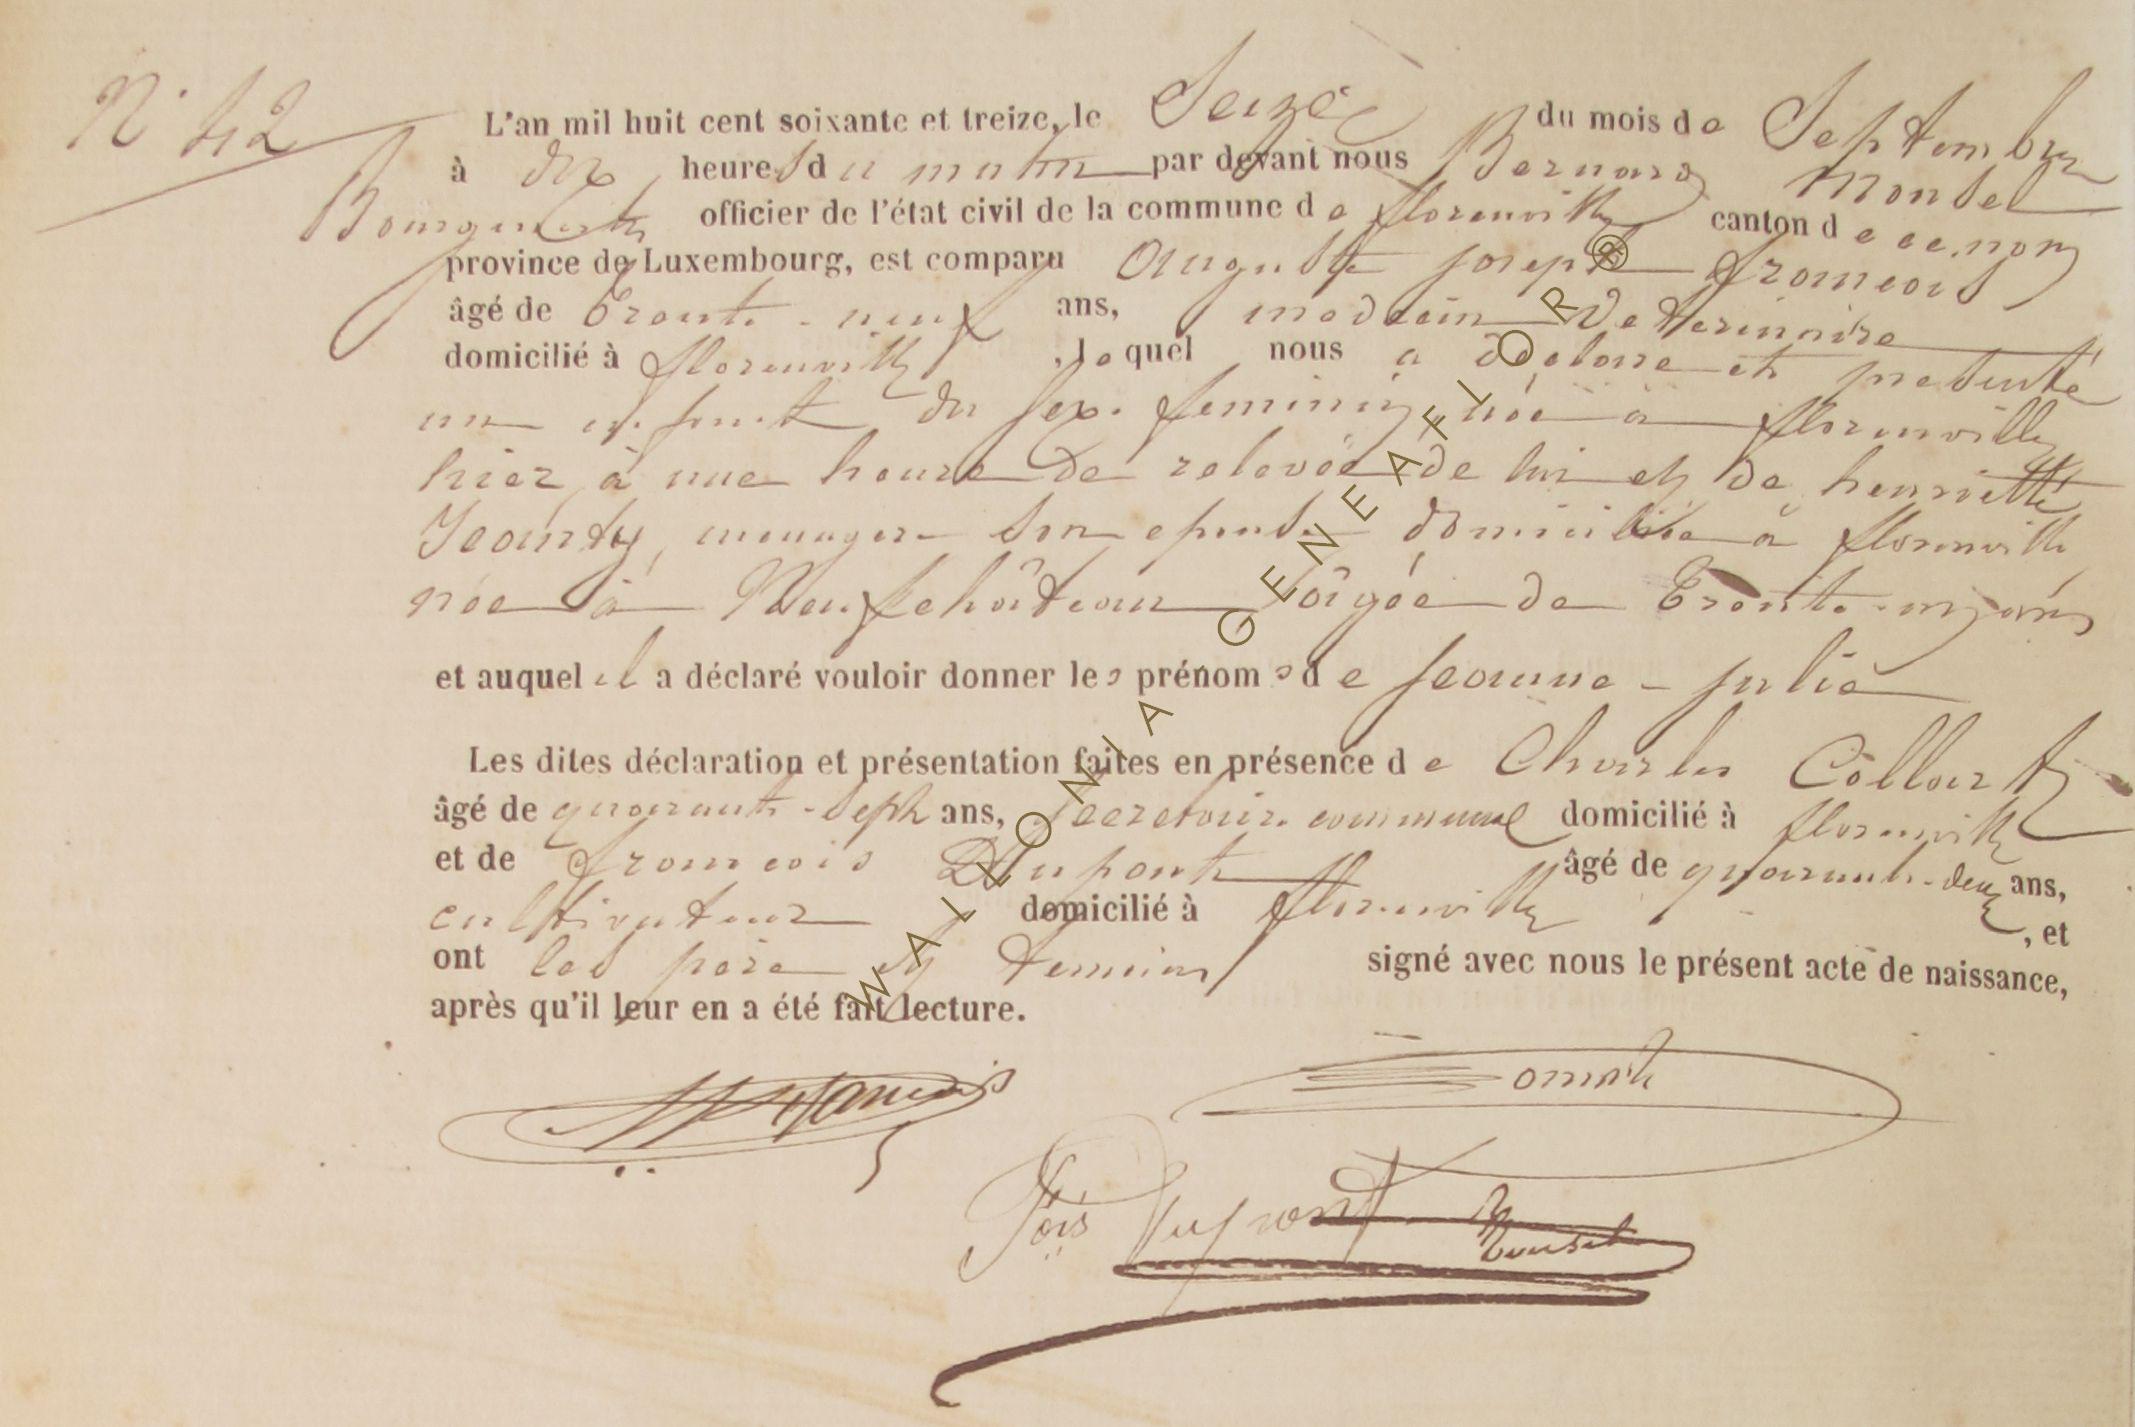 N° 42
L'an mil huit cent soixante et treize, le Seize du mois de Septembre
à dix heures du matin par devant nous Bernard Monsel
Bourgmestre officier de l'état civil de la commune de florenville canton de ce nom
province de Luxembourg, est comparu Auguste joseph francois
âgé de trente-neuf ans, medecin veterinaire
domicilié à florenville, lequel nous a declare et presenté
un enfant du sexe feminin, née à florenville
hier à une heure de relevée de lui et de henriette
Jeanty, menagere son epouse domiciliée à florenville
née à Neufchâteau âgée de trente ans
et auquel il a déclaré vouloir donner les prénoms de jeanne-julie
Les dites déclaration et présentation faites en présence de Charles Collart
âgé de quarante-sept ans, secretaire communal domicilié à florenville
et de francois Dupont âgé de quarante-deux ans,
cultivateur domicilié à florenville, et
ont les père et temoins signé avec nous le présent acte de naissance,
après qu'il leur en a été fait lecture.
francois
Fois Dupont
Monsel
WALLONIA GENEAFLOR ®